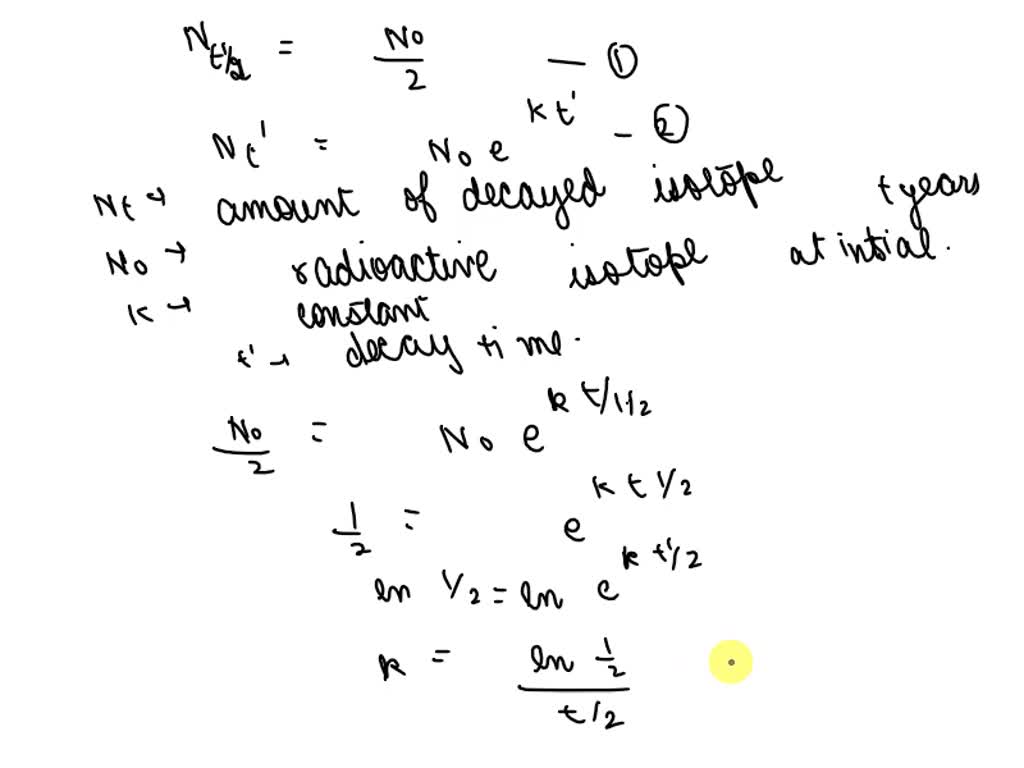 N t'/2 = No/2 — ①
Nt' = No e^kt' – ②
Nt → amount of decayed isotope t years
No → radioactive isotope at intial.
K → constant
t' → decay time.
No/2 = No e^k t/1/2
1/2 = e^k t 1/2
ln 1/2 = ln e^k t'/2
k = ln 1/2 / t/2